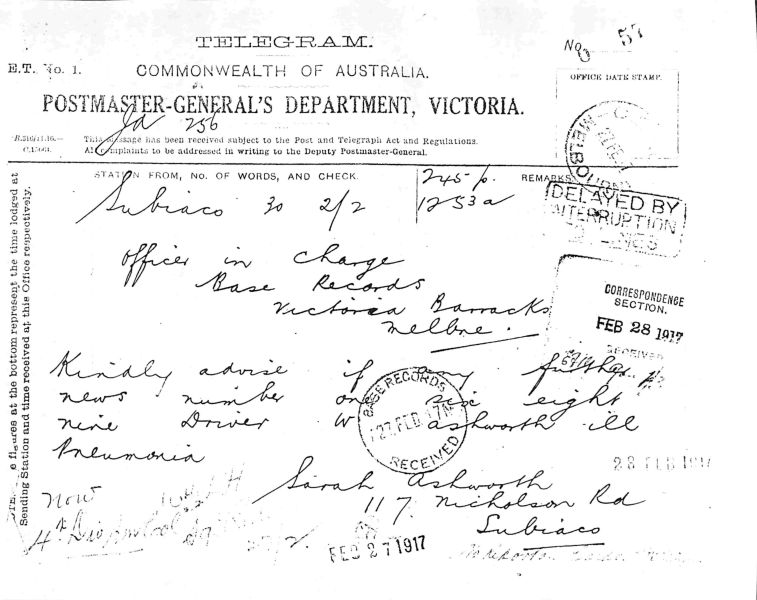 TELEGRAM.
No. 57
E.T. No. 1.
COMMONWEALTH OF AUSTRALIA.
OFFICE DATE STAMP.
POSTMASTER-GENERAL'S DEPARTMENT, VICTORIA.
256
This message has been received subject to the Post and Telegraph Act and Regulations.
All complaints to be addressed in writing to the Deputy Postmaster-General.
MELBOURNE
STATION FROM, NO. OF WORDS, AND CHECK.
REMARKS
245 p.
Subiaco 30 2/2
1253a
DELAYED BY
INTERRUPTION
Officer in Charge
Base Records
Victoria Barracks
Melbne.
CORRESPONDENCE
SECTION.
FEB 28 1917
RECEIVED
Kindly advise if any further
news number one six eight
nine Driver W ashworth ill
Pneumonia
BASE RECORDS
27 FEB 17
RECEIVED
28 FEB 1917
Sarah Ashworth
117 Nicholson Rd
Subiaco
now
FEB 27 1917
figures at the bottom represent the time lodged at
Sending Station and time received at this Office respectively.